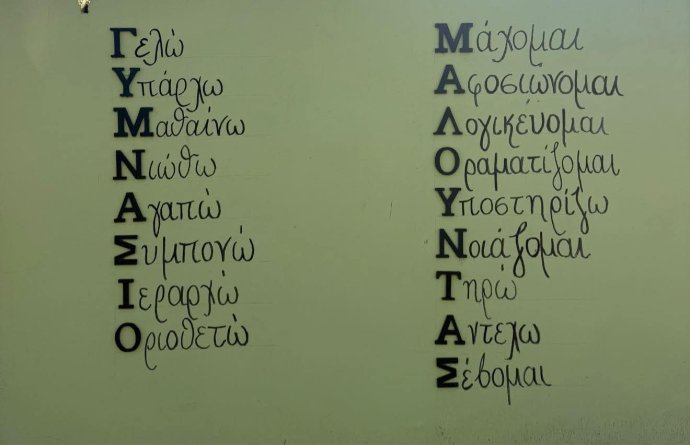 Γελώ
Υπάρχω
Μαθαίνω
Νιώθω
Αγαπώ
Συμπονώ
Ιεραρχώ
Οριοθετώ
Μάχομαι
Αφοσιώνομαι
Λογικεύομαι
Οραματίζομαι
Υποστηρίζω
Νοιάζομαι
Τηρώ
Αντέχω
Σέβομαι